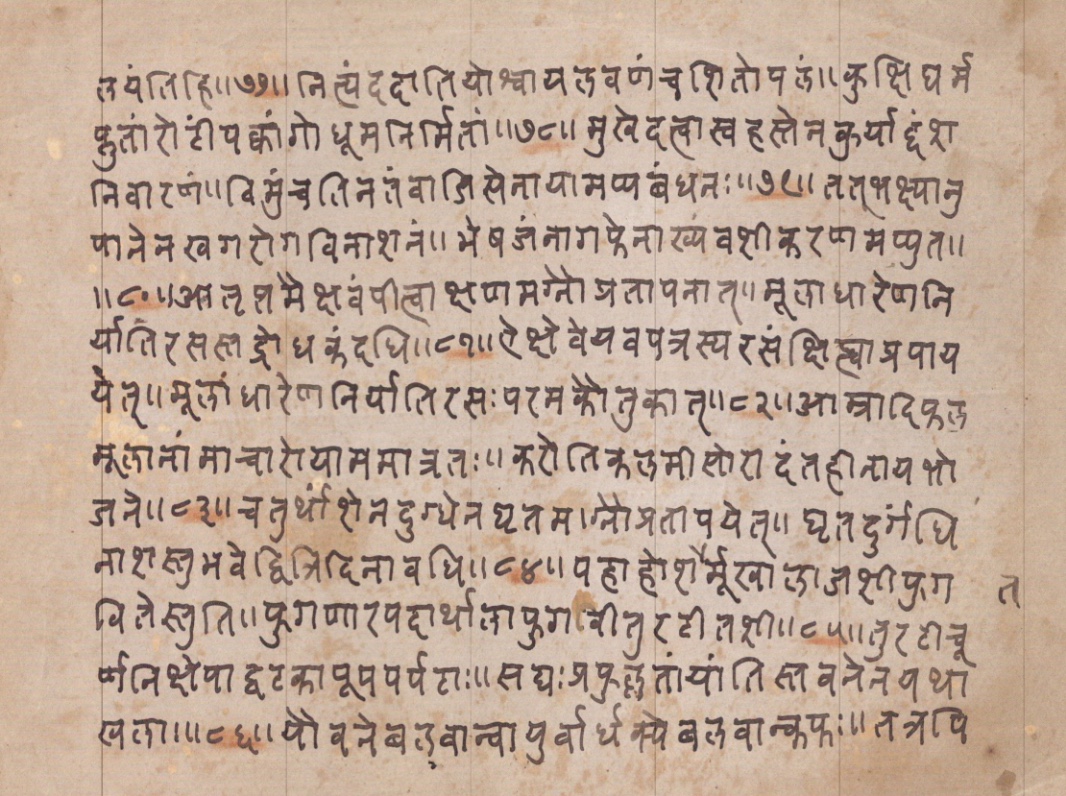 लयंतिहि॥७७॥नित्यंददातियोश्वायलवणंचशितोपलं॥कुक्षिघर्म
प्लुतांरोटींपक्कांगोधूमनिर्मितां॥७८॥मुखेदत्वास्वहस्तेनकुर्याद्दंश
निवारणं॥विमुंचतिनतंवाजिस्तेनायामप्यबंधनः॥७९॥तत्भक्ष्यानु
पानेनखगरोगविनाशनं॥भेषजंनागफेनाख्यंवशीकरणमप्युत॥
॥८०॥आतृप्तमैक्षवंपीत्वाक्षणमग्नौप्रतापनात्॥मूलाधारेणनि
र्यातिरसस्तद्रोधकंदधि॥८१॥ऐक्षवेयवपत्रस्यरसंक्षिप्त्वाप्रपाय
येत्॥मूलाधारेणनिर्यातिरसःपरमकौतुकात्॥८२॥आम्रादिफल
मूलानांमाचारोयाममात्रतः॥करोतिकलमीसोरादंतहीनायभो
जने॥८३॥चतुर्थांशेनदुग्धेनघृतमग्नौप्रतापयेत्॥घृतदुर्गंधि
नाशस्तुभवेद्द्वित्रिदिनावधि॥८४॥पहाहोशैर्मूखालाजशीफुग
वितेस्तुति॥फुगणारपदार्थालाफुगवीतुरटीतशी॥८५॥तुरटीचू
त
र्णनिक्षेपाद्वटकापूपपर्पटाः॥सद्यःप्रफुल्लतांयांतिस्तवनेनयथा
खला॥॥८६॥यौवनेबलवान्वायुर्वार्धक्येबलवान्कफः॥तत्रपि